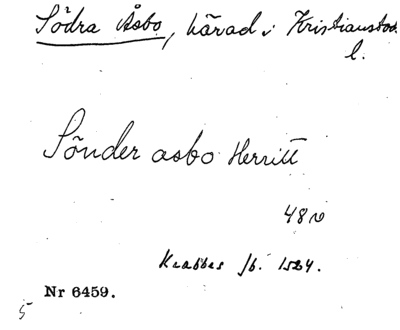 Södra Åsbo, härad i Kristianstads
l.
Sönder asbo Herritt
48 v
Krabbes jb. 1524.
Nr 6459.
5